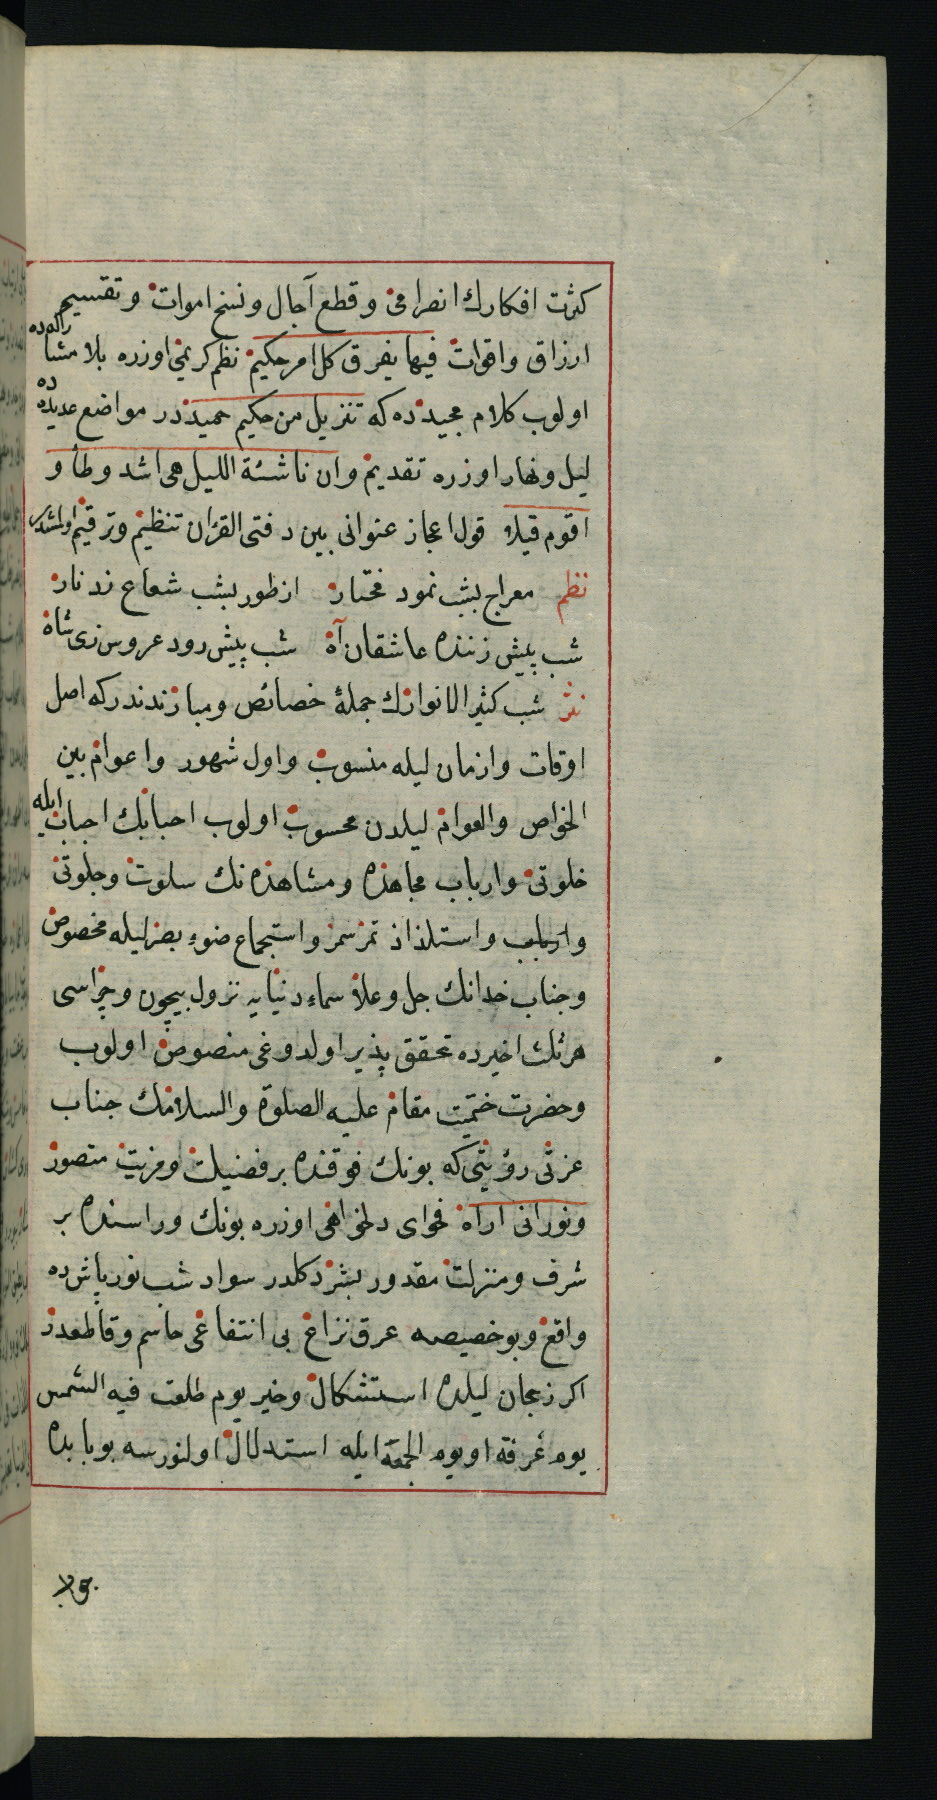 كثرت افكارك انصرامی و قطع آجال و نسخ اموات و تقسیم
ارزاق واقوات فیها یفرق كل امر حكیم نظم كریمی اوزره بلا مشاركه ده
اولوب كلام مجیدده كه تنزیل من حكیم حمیددر مواضع عدیده ده
لیل ونهار اوزره تقدیم وان ناشئة اللیل هی اشد وطأ و
اقوم قیلا قول اعجاز عنوانی بین دفتی القرآن تنظیم وترقیم اولنمشدر
نظم معراج بشب نمود مختار از طور بشب شعاع زد نار
شب پیش زننده عاشقان آه شب پیش رود عروس زی شاه
نثر شب كثیر الانوارك جملۀ خصائص ومبارندندر كه اصل
اوقات وازمان لیله منسوب واول شهور واعوام بین
الخواص والعوام لیلدن محسوب اولوب احبابك احباب ایله
خلوتی وارباب مجاهده ومشاهده نك سلوت وجلوتی
و واستلذاذ ثمر سمر واستجماع ضوء بصر لیله مخصوص
وجناب خدانك جل وعلا سماء دنیایه نزول بیچون وچراسی
هر ثلث اخیرده تحقق پذیر اولدوغی منصوص اولوب
وحضرت ختمیت مقام علیه الصلوة والسلامك جناب
عزتی رؤیتی كه بونك فوقنده بر فضیلت ومزیت متصور
ونورانی اراه فحوای دلخواهی اوزره بونك وراسنده بر
شرف ومنزلت مقدور بشر دكلدر سواد شب نورپاش ده
واقع وبو خصیصه عرق نزاع بی انتفاعی حاسم وقاطعدر
اكر رجحان لیلده استشكال وخیر یوم طلعت فیه الشمس
یوم عرفة او یوم الجمعة ایله استدلال اولنورسه بو بابده